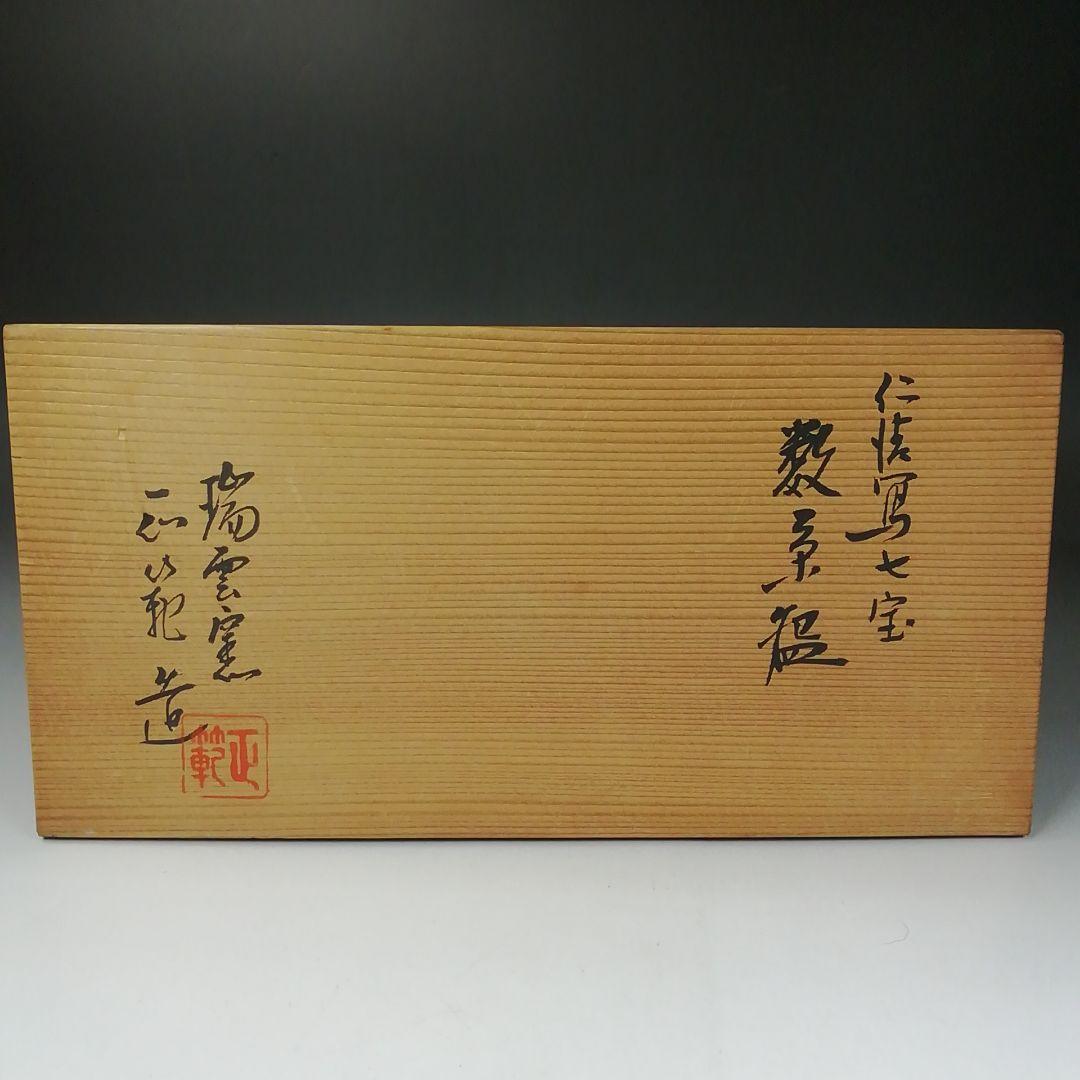 仁清写七宝
数茶盌
瑞雲窯
正範造
正範